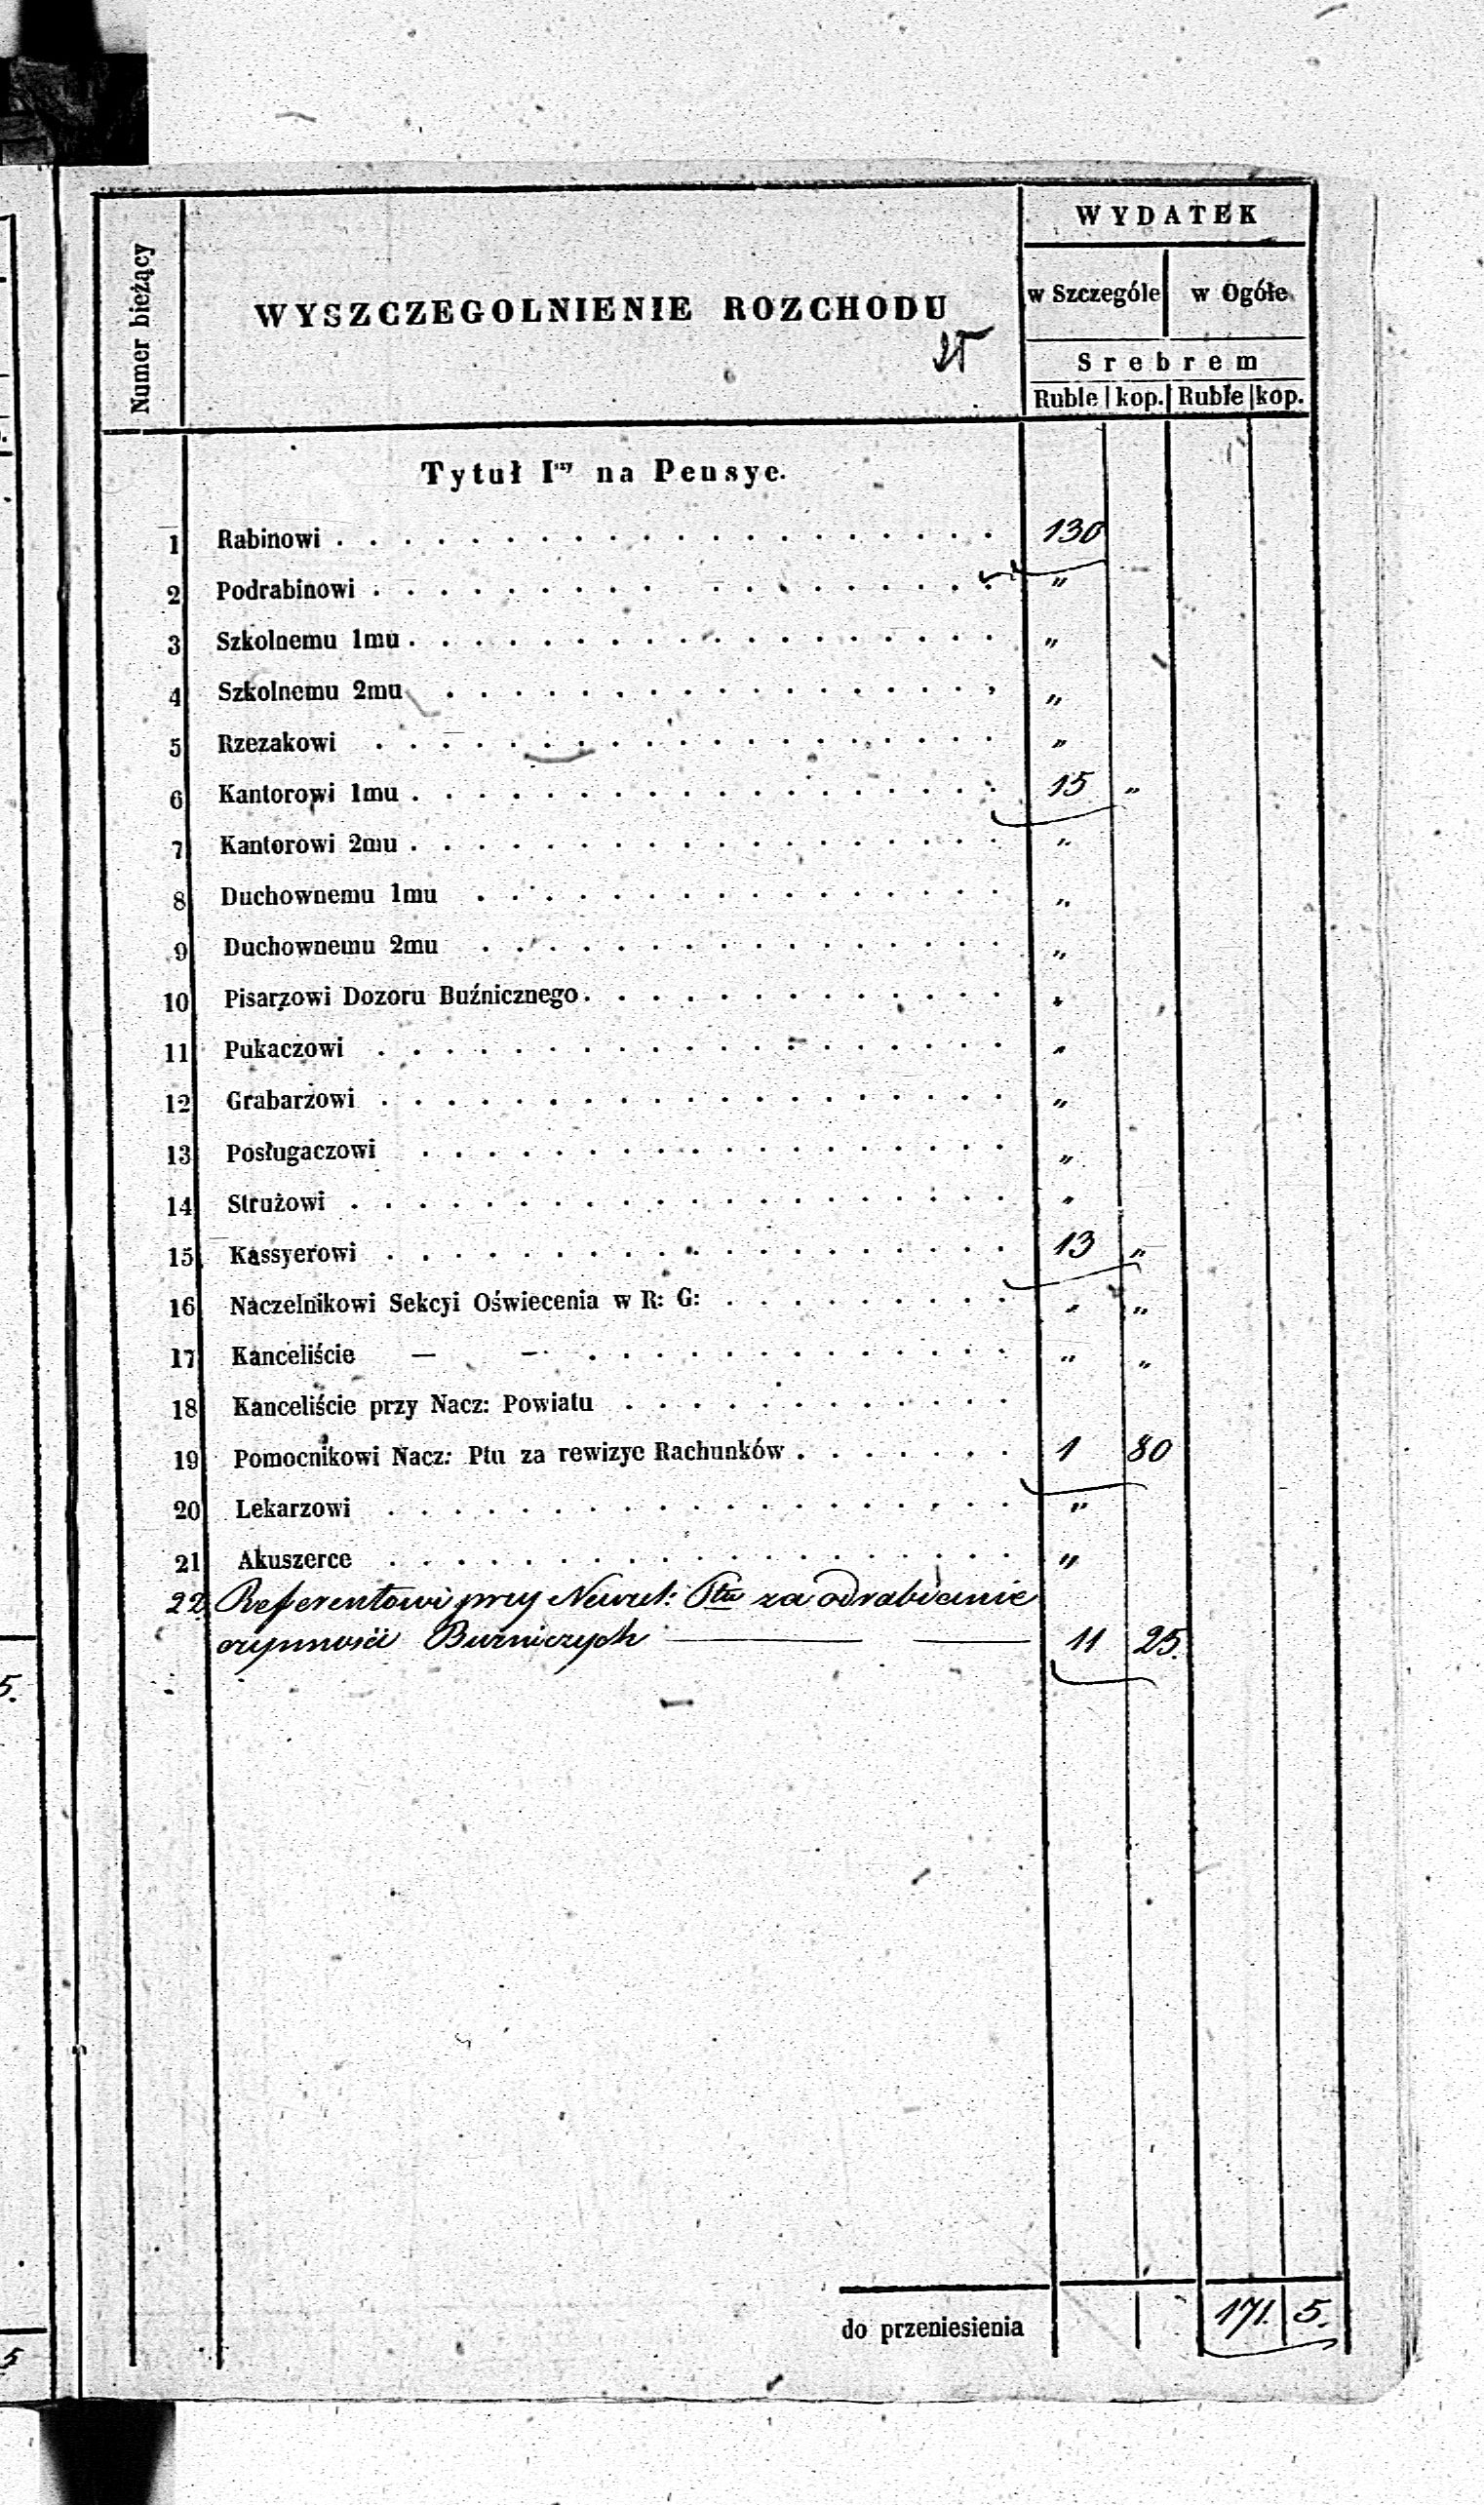 Numer bieżący
WYSZCZEGOLNIENIE ROZCHODU
WYDATEK
w Szczególe w Ogóle
Srebrem
Ruble kop. Ruble kop.
Tytuł Iszy na Peusye.
1 Rabinowi 130
2 Podrabinowi "
3 Szkolnemu 1mu "
4 Szkolnemu 2mu "
5 Rzezakowi "
6 Kantorowi 1mu 15 "
7 Kantorowi 2mu "
8 Duchownemu 1mu "
9 Duchownemu 2mu "
10 Pisarzowi Dozoru Buźnicznego "
11 Pukaczowi "
12 Grabarzowi "
13 Posługaczowi "
14 Strużowi "
15 Kassyerowi 13 "
16 Naczelnikowi Sekcyi Oświecenia w R: G: " "
17 Kanceliście — — " "
18 Kanceliście przy Nacz: Powiatu
19 Pomocnikowi Nacz: Ptu za rewizye Rachunków 1 80
20 Lekarzowi "
21 Akuszerce "
22 Referentowi przy Ptu za odrabianie
czynności Buzniczych 11 25.
do przeniesienia 171. 5.